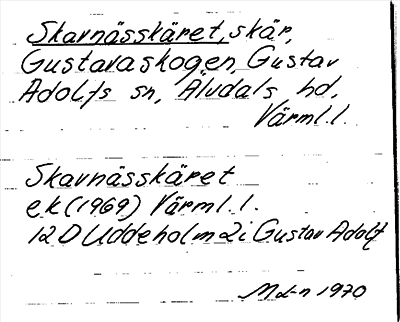 Skavnässkäret, skär,
Gustavaskogen, Gustav
Adolfs sn, Älvdals hd,
Värml. l.
Skavnässkäret
ek (1969) Värml. l.
12 D Uddeholm 2 i Gustav Adolf
Md-n 1970